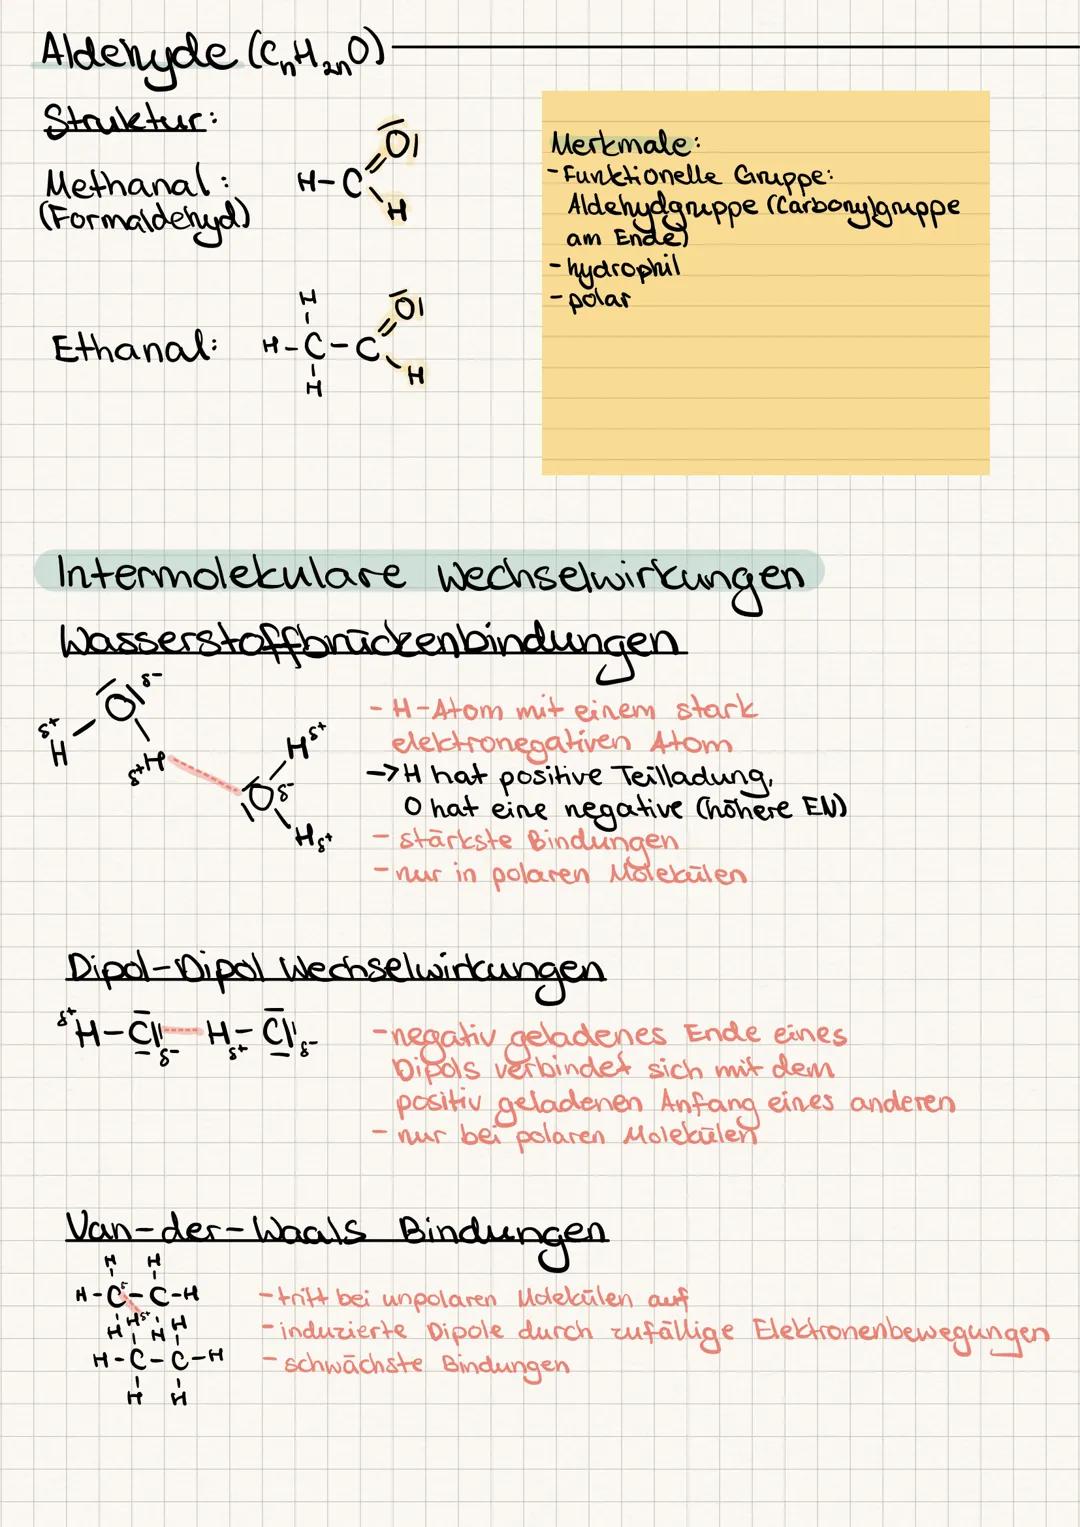 Aldehyde (CₙH₂ₙO)
Struktur:
Methanal:
(Formaldehyd)
H-C
O
H
Merkmale:
- Funktionelle Gruppe:
Aldehydgruppe (Carbonylgruppe
am Ende)
- hydrophil
- polar
Ethanal:
H
O
H-C-C
H
H
Intermolekulare Wechselwirkungen
Wasserstoffbrückenbindungen
O δ-
δ+ H
δ+ H
H δ+
O δ-
H δ+
- H-Atom mit einem stark
elektronegativen Atom
-> H hat positive Teilladung,
O hat eine negative (höhere EN)
- stärkste Bindungen
- nur in polaren Molekülen
Dipol-Dipol Wechselwirkungen
δ+ H-Cl δ- H δ+ - Cl δ-
- negativ geladenes Ende eines
Dipols verbindet sich mit dem
positiv geladenen Anfang eines anderen
- nur bei polaren Molekülen
Van-der-Waals Bindungen
H H
H-C δ- -C-H
H H δ+ H H
H-C-C-H
H H
- tritt bei unpolaren Molekülen auf
- induzierte Dipole durch zufällige Elektronenbewegungen
- schwächste Bindungen